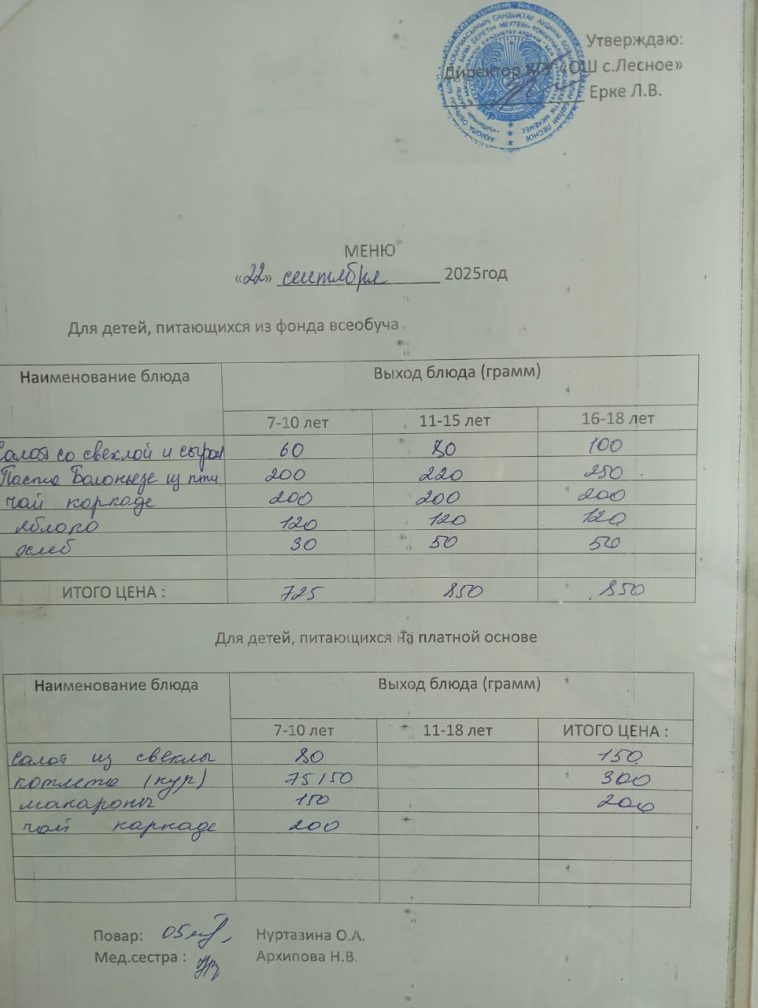 Утверждаю:
Директор КГУ «ОШ с.Лесное»
Ерке Л.В.
МЕНЮ
«22» сентября 2025год
Для детей, питающихся из фонда всеобуча
Наименование блюда Выход блюда (грамм)
7-10 лет 11-15 лет 16-18 лет
Салат со свеклой и сыром 60 80 100
Паста Балоньезе из пти. 200 220 250
чай каркаде 200 200 200
яблоко 120 120 120
хлеб 30 50 50
ИТОГО ЦЕНА : 725 850 850
Для детей, питающихся на платной основе
Наименование блюда Выход блюда (грамм)
7-10 лет 11-18 лет ИТОГО ЦЕНА :
салат из свеклы 80 150
котлета (кур) 75/50 300
макароны 150 200
чай каркаде 200
Повар: Нуртазина О.А.
Мед.сестра : Архипова Н.В.